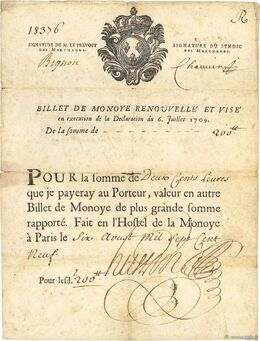 18376
R
SIGNATURE DE M. LE PREVOST
DES MARCHANDS.
SIGNATURE DU SYNDIC
DES MARCHANDS.
Bignon
BILLET DE MONOYE RENOUVELLE ET VISE'
en execution de la Declaration du 6. Juillet 1709.
De la somme de - - - - - - - - - - 200#
POUR la somme de Deux Cents Livres
que je payeray au Porteur, valeur en autre
Billet de Monoye de plus grande somme
rapporté. Fait en l'Hostel de la Monoye
à Paris le Six Aoust Mil Sept Cent
Neuf.
Pour lesd. 200#